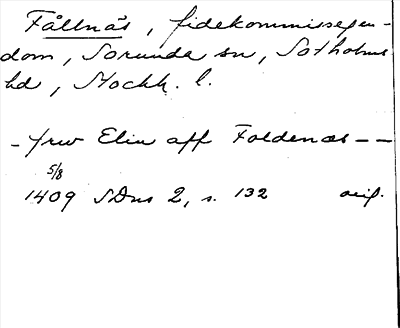 Fållnäs, fidekommissegen-
dom, Sorunda sn, Sotholms
hd, Stockh. l.
- frw Elin aff Foldenæs - -
5/8
1409 SDns 2, s. 132 avif.